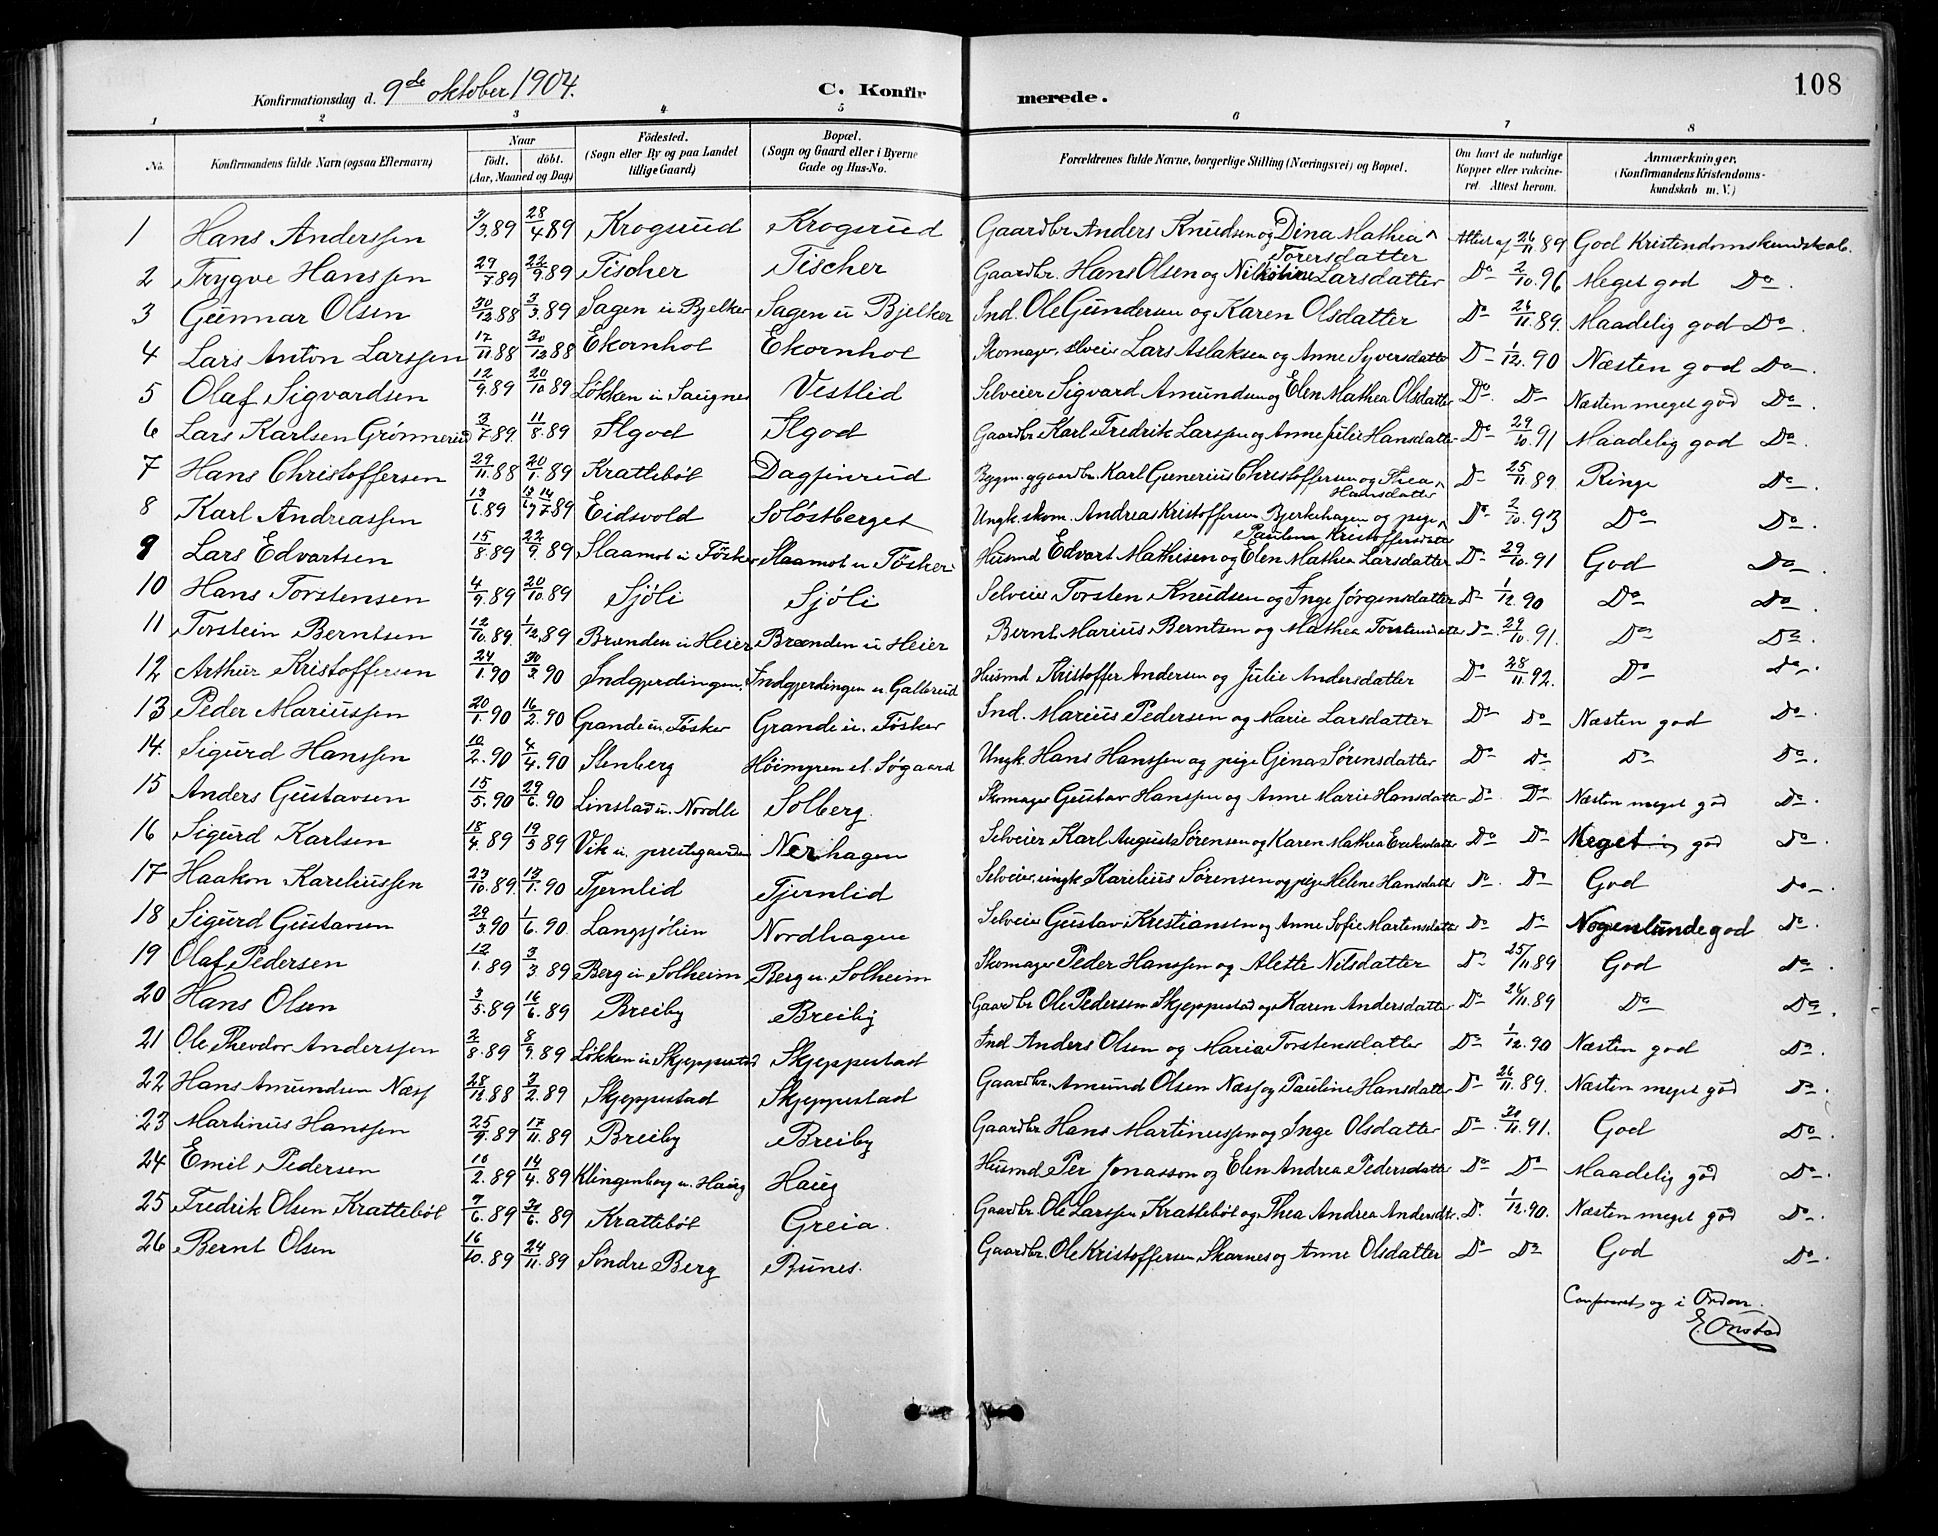 108
Konfirmationsdag d. 9de oktober 1904. C. Konfirmerede.
1 2 3 4 5 6 7 8
No. Konfirmandens fulde Navn (ogsaa Efternavn) Naar født. døbt. (Aar, Maaned og Dag) Fødested. (Sogn eller By og paa Landet tillige Gaard) Bopæl. (Sogn og Gaard eller i Byerne Gade og Hus-No. Forældrenes fulde Navne, borgerlige Stilling (Næringsvei) og Bopæl. Om havt de naturlige Kopper eller vakcineret. Attest herom. Anmærkninger. (Konfirmandens Kristendomskundskab m. V.)
1 Hans Anderssen 3/3.89 28/4.89 Krogsrud Krogsrud Gaardbr Anders Knudsen og Dina Mathea Torersdatter Attest af 26/11.89 God Kristendomskundskab.
2 Trygve Hanssen 29/7.89 22/9.89 Fischer Fischer Gaardbr. Hans Olsen og Nilsine Larsdatter Do 2/10.96 Meget god Do.
3 Gunnar Olsen 30/12.88 3/3.89 Sagen u Bjelker Sagen u Bjelker Ind. Ole Gundersen og Karen Olsdatter Do 26/11.89. Maadelig god Do.
4 Lars Anton Larssen 17/11.88 30/12.88 Ekornhol Ekornhol Skomager, selveier Lars Aslaksen og Anne Syversdatter Do 1/12.90 Næsten god Do.
5 Olaf Sigvardsen 12/9.89 20/10.89 Løkken u Saugnes Vestlid Selveier Sigvard Amundsen og Elen Mathea Olsdatter Do. Do Næsten meget god Do.
6 Lars Karlsen Grönnerud 3/7.89. 11/8.89 Algod Algod Gaardbr Karl Fredrik Larssen og Anne Julie Hansdatter Do 29/10.91 Maadelig god Do.
7 Hans Christoffersen 29/11.88 20/1.89 Krattebøl Dagfinrud Bygm. og gaardbr. Karl Gunerius Christoffersen og Thea Hansdatter Do 25/11.89. Ringe Do.
8 Karl Andreassen 13/6.89 14/7.89 Eidsvold Soløstberget Ungk. skom. Andreas Kristoffersen Bjerkehagen og pige Pauline Kristoffersdatter Do 2/10.93 Do Do.
9 Lars Edvartsen 15/8.89 22/9.89 Slaamot u Føsker Slaamot u Føsker Husmd Edvart Mathisen og Elen Mathea Larsdatter Do 29/10.91 God Do.
10 Hans Torstensen 4/9.89 20/10.89 Sjøli Sjøli Selveier Torsten Knudsen og Inge Jørgensdatter Do 1/12.90 Do Do.
11 Torstein Berntsen 12/10.89. 1/12.89 Brænden u Heier Brænden u Heier Bernt Marius Berntsen og Mathea Torstensdatter Do. 29/10.91. Do Do
12 Arthur Kristoffersen 24/1.90 30/3.90 Indgjerdingen. Indgjerdingen u. Galterud Husmd Kristoffer Andersen og Julie Andersdatter Do 28/11.92. Do Do.
13 Peder Mariussen 20/1.90 16/2.90 Grande u. Føsker Grande u. Føsker Ind. Marius Pedersen og Marie Larsdatter Do Do Næsten god Do.
14. Sigurd Hanssen 10/2.90 4/4.90 Stenberg Höimyren et. Søgaard Ungk. Hans Hanssen og pige Gjena Sørensdatter Do Do Do Do.
15 Anders Gustavsen 15/5.90 29/6.90 Linstad u. Nordli Solberg. Skomager Gustav Hanssen og Anne Marie Hansdatter Do. Do. Næsten meget god Do.
16 Sigurd Karlsen 18/4.89 19/5.89 Vik u. prestegaarden Nerhagen Selveier Karl August Sørensen og Karen Mathea Eriksdatter Do Do Meget god Do.
17 Haakon Kareliussen 23/10.89. 13/1.90 Tjernlid Tjernlid Selveier, ungk Karelius Sørensen og pige Helene Hansdatter Do. Do God Do.
18 Sigurd Gustavsen 29/3.90 1/6.90. Langsjølien Nordhagen Selveier Gustav Kristiansen og Anne Sofie Martensdatter Do Do Nogenlunde god Do.
19 Olaf Pedersen 12/1.89 3/3.89 Berg u Solheim Berg u. Solheim Skomager Peder Hanssen og Alette Nilsdatter Do 25/11.89 God Do.
20 Hans Olsen 3/5.89 16/6.89 Breiby Breiby Gaardbr Ole Pedersen Skjeppestad og Karen Andersdatter Do 26/11.89 Do Do.
21 Ole Theodor Anderssen 2/8.89 8/9.89 Løkken u Skjeppestad Skjeppestad Ind Anders Olsen og Maria Torstensdatter Do 1/12.90 Næsten god Do.
22 Hans Amundsen Næss 28/12.88 3/2.89 Skjeppestad Skjeppestad Gaardbr. Amund Olsen Næss og Pauline Hansdatter Do 26/11.89. Næsten meget god Do.
23 Martinus Hanssen 25/9.89 17/11.89 Breiby Breiby Gaardbr Hans Martinussen og Inge Olsdatter Do. 20/11.91. God Do.
24 Emil Pedersen 10/2.89 14/4.89 Klingenberg u. Haug Haug Husmd Per Jonasson og Elen Andrea Pedersdatter Do Do Maadelig god Do.
25 Fredrik Olsen Krattebøl 7/6.89 30/6.89 Krattebøl Greia. Gaardbr Ole Larssen Krattebøl og Thea Andrea Andersdtr. Do. 1/12.90. Næsten meget god Do.
26 Bernt Olsen 16/10.89 24/11.89 Søndre Berg Runes. Gaardbr. Ole Kristoffersen Skarnes og Anne Olsdatter Do Do God Do.
Confereret og i Orden.
E. Onstad